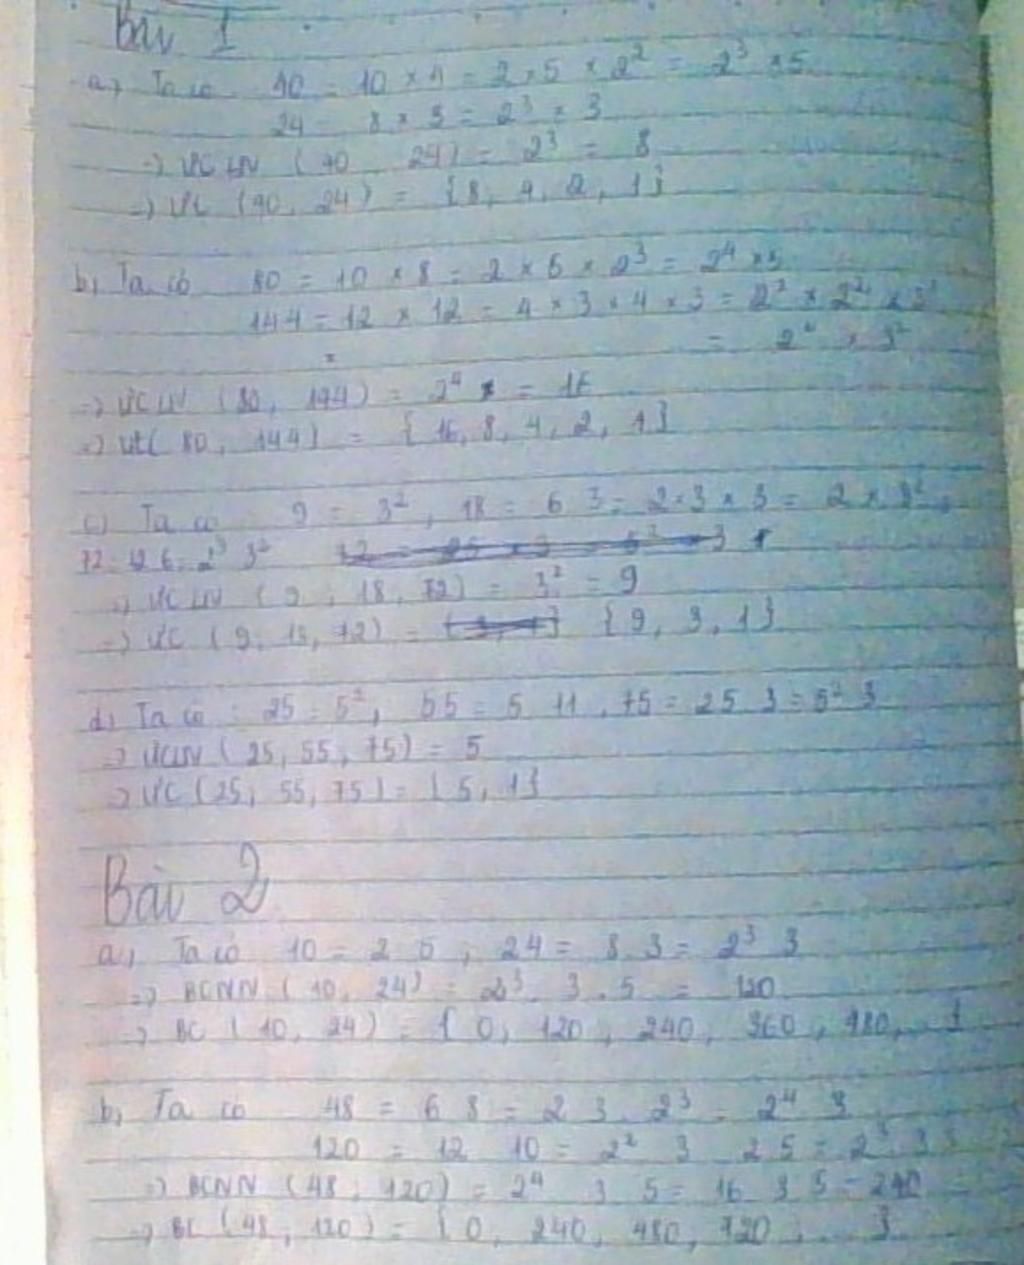 Bài 1
a, Ta có 40 = 10 × 4 = 2 × 5 × 2² = 2³ × 5
24 = 8 × 3 = 2³ × 3
=> ƯCLN (40 24) = 2³ = 8
=> ƯC (40, 24) = {8, 4, 2, 1}
b, Ta có 80 = 10 × 8 = 2 × 5 × 2³ = 2⁴ × 5
144 = 12 × 12 = 4 × 3 × 4 × 3 = 2² × 2² × 3²
= 2⁴ × 3²
=> ƯCLN (80, 144) = 2⁴ = 16
=> ƯC( 80, 144) = { 16, 8, 4, 2, 1}
c) Ta có 9 = 3², 18 = 6 3 = 2 × 3 × 3 = 2 × 3²,
72 = 12 6 = 2³ 3²
=> ƯCLN (9, 18, 72) = 3² = 9
=> ƯC (9, 18, 72) = {9, 3, 1}
d, Ta có : 25 = 5², 55 = 5 11, 75 = 25 3 = 5² 3
=> ƯCLN (25, 55, 75) = 5
=> ƯC (25, 55, 75) = {5, 1}
Bài 2
a, Ta có 10 = 2 5 ; 24 = 8.3 = 2³ 3
=> BCNN (10, 24) = 2³. 3 . 5 = 120
=> BC (10, 24) = { 0, 120, 240, 360, 480, }
b, Ta có 48 = 6 8 = 2 3. 2³ = 2⁴ 3
120 = 12 10 = 2² 3 2 5 = 2³. 3
=> BCNN (48, 120) = 2⁴ 3 5 = 16 3 5 = 240
=> BC (48, 120) = {0, 240, 480, 720, . }